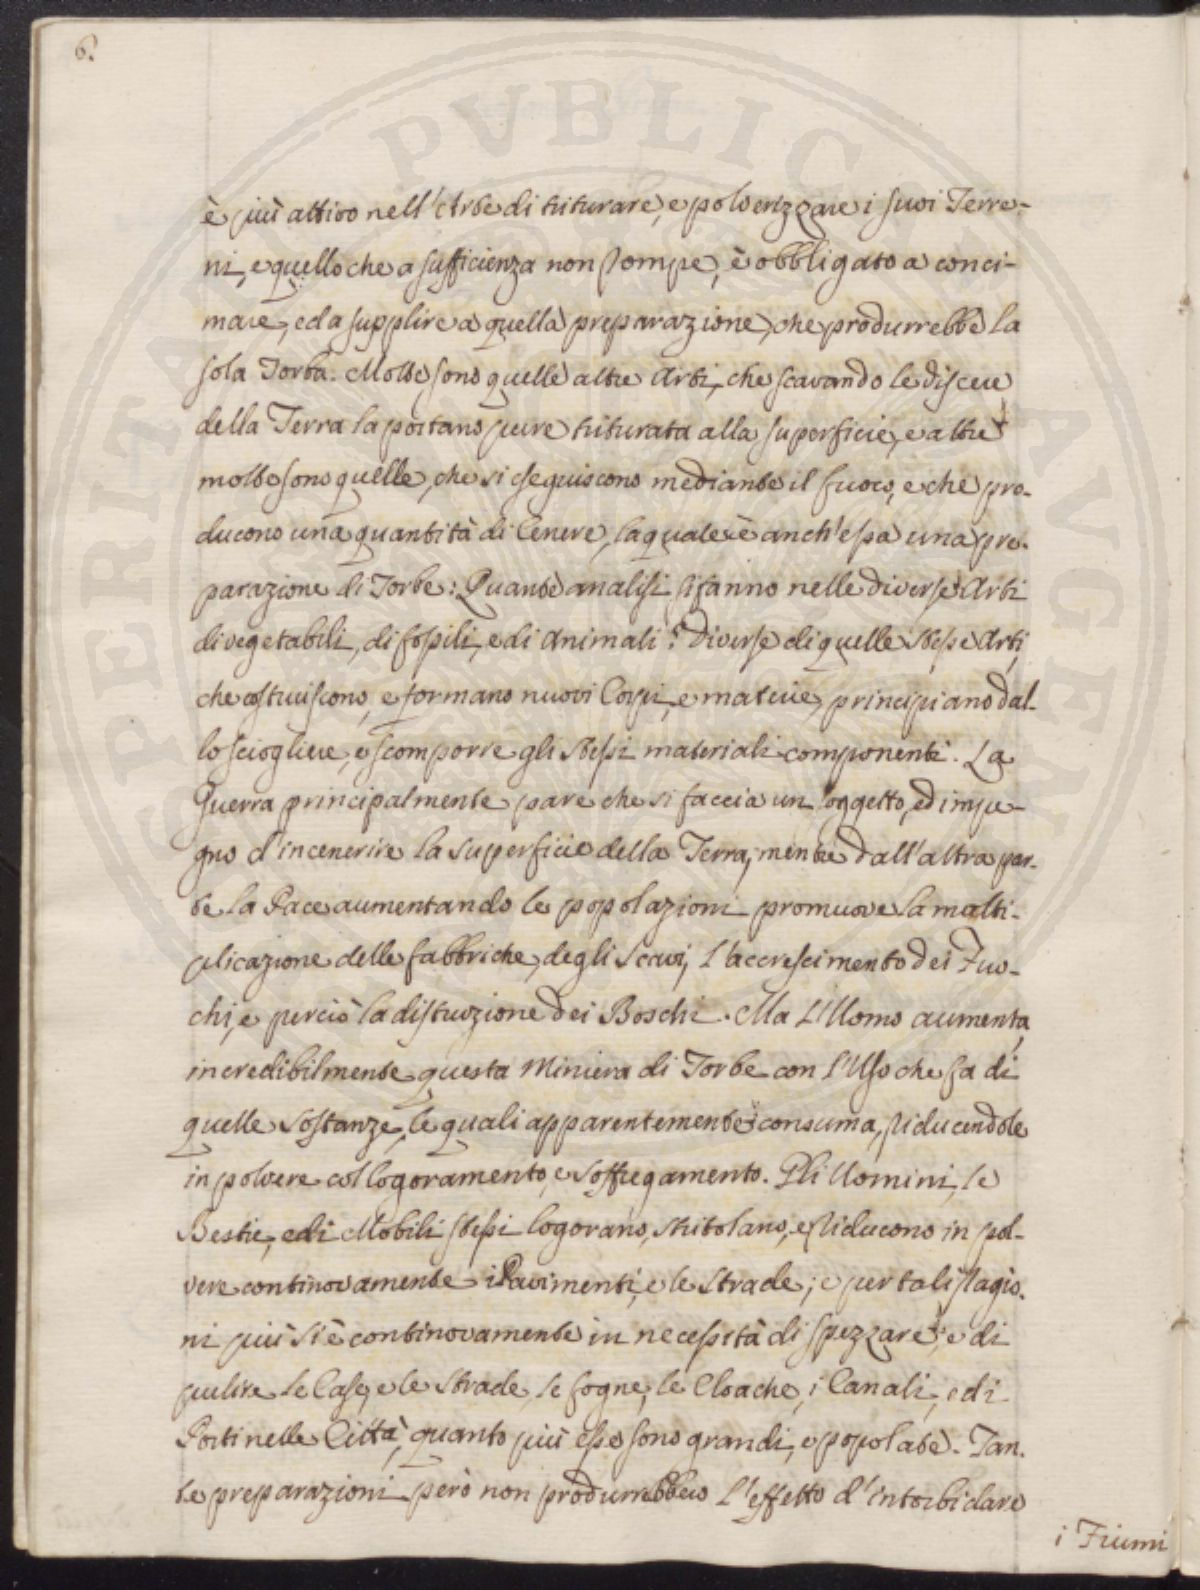 6.
è più attivo nell'Arte di triturare, e polverizzare i suoi Terre-
ni, e quello che a sufficienza non rompe, è obbligato a conci-
mare, ed a supplire a quella preparazione, che produrrebbe la
sola Torba. Molte sono quelle altre Arti, che scavando le viscere
della Terra la portano pure triturata alla superficie, e altre
molte sono quelle, che si eseguiscono mediante il fuoco, e che pro-
ducono una quantità di Cenere, la quale è anch'essa una pre-
parazione di Torbe: Quante analisi si fanno nelle diverse Arti
di vegetabili, di fossili, e di Animali? Diverse di quelle stesse Arti,
che costruiscono, e formano nuovi Corpi, e materie, principiano dal-
lo sciogliere, e scomporre gli stessi materiali componenti. La
Guerra principalmente pare che si faccia un oggetto, ed impe-
gno d'incenerire la superficie della Terra, mentre dall'altra par-
te la Pace aumentando le popolazioni promuove la molti-
plicazione delle fabbriche, degli Scavi, l'accrescimento dei Fuo-
chi, e perciò la distruzione dei Boschi. Ma l'Uomo aumenta
incredibilmente questa Miniera di Torbe con l'Uso che fa di
quelle sostanze, le quali apparentemente consuma, riducendole
in polvere col logoramento, e soffregamento. Gli Uomini, le
Bestie, ed i Mobili stessi logorano, stritolano, e riducono in pol-
vere continovamente i Pavimenti, e le Strade; e per tali ragio-
ni più si è continovamente in necessità di spezzare, e di
pulire le Case, e le Strade, le fogne, le Cloache, i Canali, ed i
Porti nelle Città, quanto più esse sono grandi, e popolate. Tan-
te preparazioni però non produrrebbero l'effetto d'intorbidare
i Fiumi
PERITATI PVBLICAE AVGEN